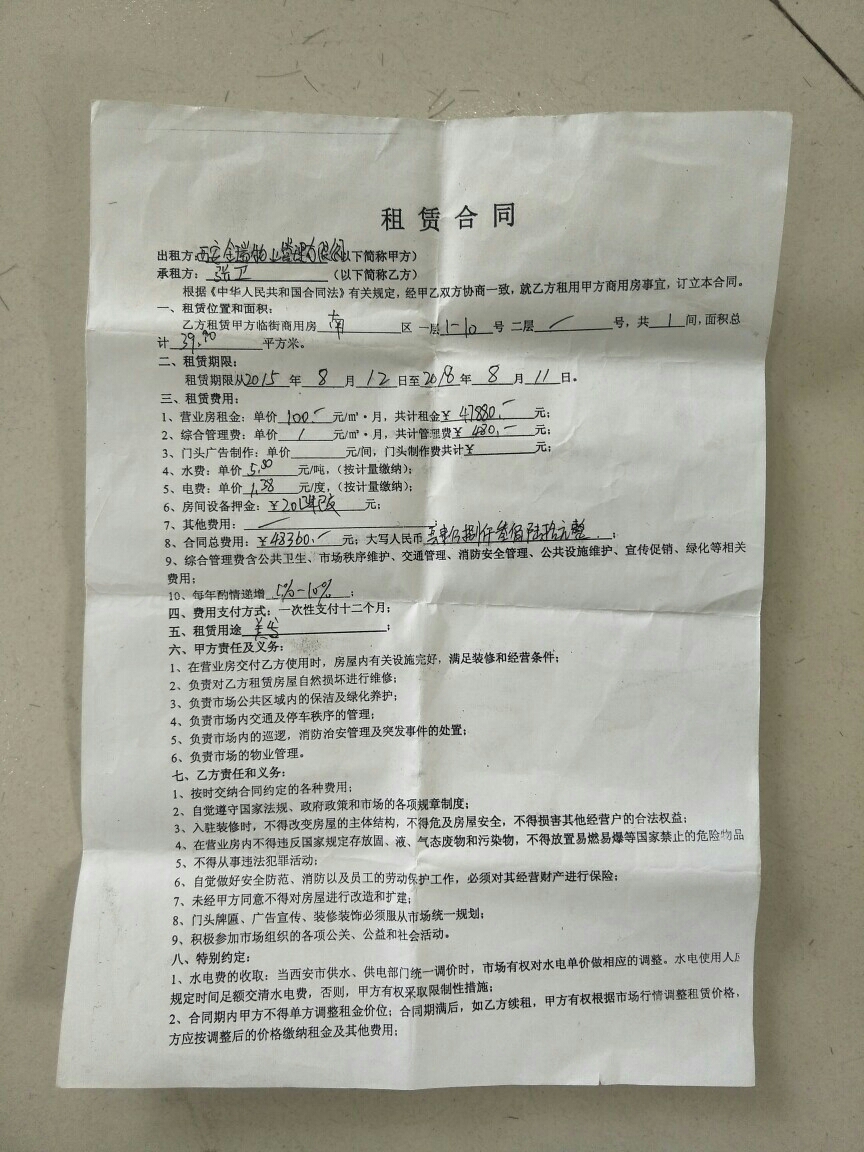 租赁合同
出租方：西安金瑞物业管理有限公司（以下简称甲方）
承租方：张卫（以下简称乙方）
根据《中华人民共和国合同法》有关规定，经甲乙双方协商一致，就乙方租用甲方商用房事宜，订立本合同。
一、租赁位置和面积：
乙方租赁甲方临街商用房 南 区 一层 1-10 号 二层 / 号，共 1 间，面积总
计 39.90 平方米。
二、租赁期限：
租赁期限从2015 年 8 月 12 日至 2018 年 8 月 11 日。
三、租赁费用：
1、营业房租金：单价 100.- 元/㎡·月，共计租金￥47880.- 元；
2、综合管理费：单价 1 元/㎡·月，共计管理费￥480.- 元；
3、门头广告制作：单价 元/间，门头制作费共计￥ 元；
4、水费：单价 5.80 元/吨，（按计量缴纳）；
5、电费：单价 1.38 元/度，（按计量缴纳）；
6、房间设备押金：￥ 元；
7、其他费用： /
8、合同总费用：￥48360.- 元；大写人民币 肆万捌仟叁佰陆拾元整 ；
9、综合管理费含公共卫生、市场秩序维护、交通管理、消防安全管理、公共设施维护、宣传促销、绿化等相关
费用；
10、每年酌情递增 5%-10% ；
四、费用支付方式：一次性支付十二个月；
五、租赁用途 ；
六、甲方责任及义务：
1、在营业房交付乙方使用时，房屋内有关设施完好，满足装修和经营条件；
2、负责对乙方租赁房屋自然损坏进行维修；
3、负责市场公共区域内的保洁及绿化养护；
4、负责市场内交通及停车秩序的管理；
5、负责市场内的巡逻，消防治安管理及突发事件的处置；
6、负责市场的物业管理。
七、乙方责任和义务：
1、按时交纳合同约定的各种费用；
2、自觉遵守国家法规、政府政策和市场的各项规章制度；
3、入驻装修时，不得改变房屋的主体结构，不得危及房屋安全，不得损害其他经营户的合法权益；
4、在营业房内不得违反国家规定存放固、液、气态废物和污染物，不得放置易燃易爆等国家禁止的危险物品
5、不得从事违法犯罪活动；
6、自觉做好安全防范、消防以及员工的劳动保护工作，必须对其经营财产进行保险；
7、未经甲方同意不得对房屋进行改造和扩建；
8、门头牌匾、广告宣传、装修装饰必须服从市场统一规划；
9、积极参加市场组织的各项公关、公益和社会活动。
八、特别约定：
1、水电费的收取：当西安市供水、供电部门统一调价时，市场有权对水电单价做相应的调整。水电使用人应
规定时间足额交清水电费，否则，甲方有权采取限制性措施；
2、合同期内甲方不得单方调整租金价位；合同期满后，如乙方续租，甲方有权根据市场行情调整租赁价格，
方应按调整后的价格缴纳租金及其他费用；